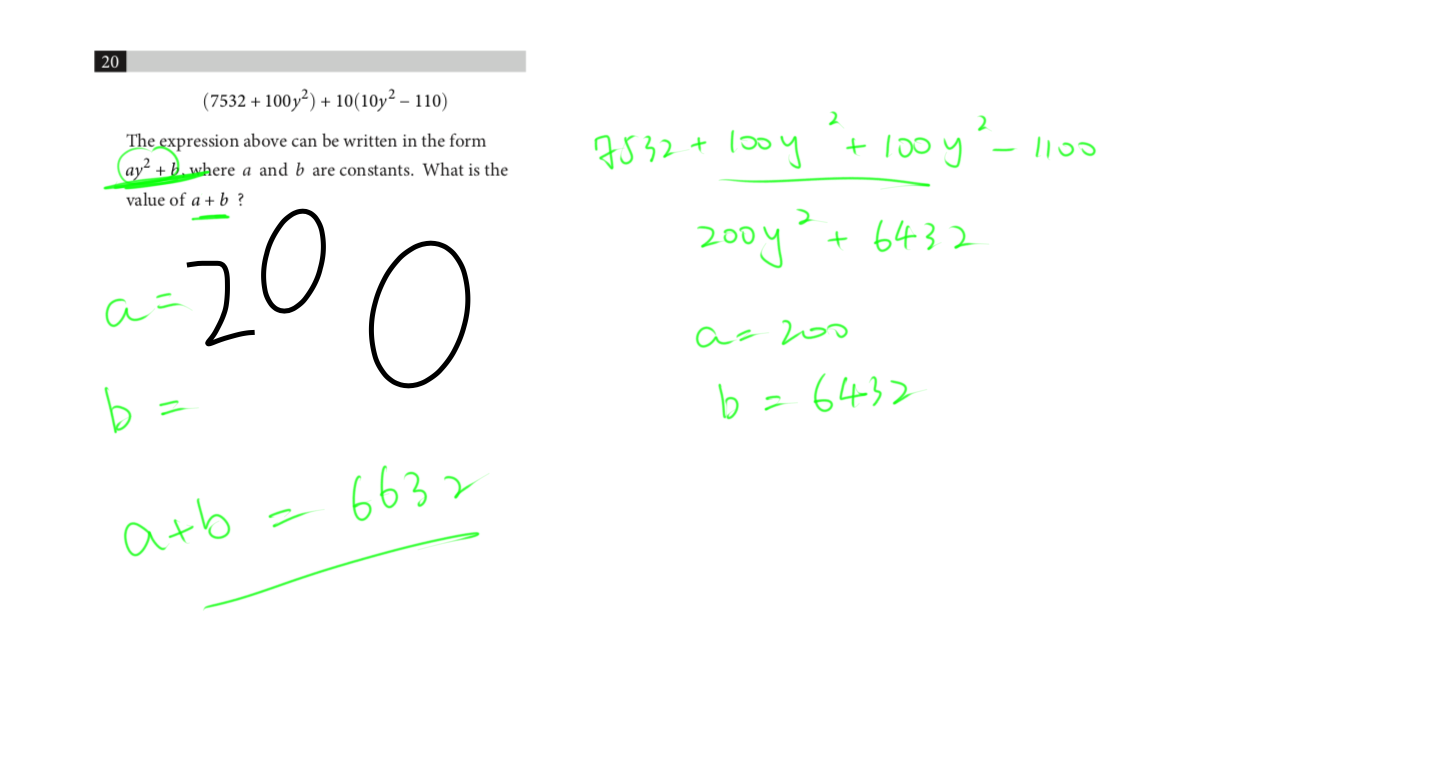 20
(7532 + 100y²) + 10(10y² − 110)
The expression above can be written in the form
ay² + b, where a and b are constants. What is the
value of a + b ?
a = 200
b =
a+b = 6632
7532 + 100y² + 100y² − 1100
200y² + 6432
a = 200
b = 6432